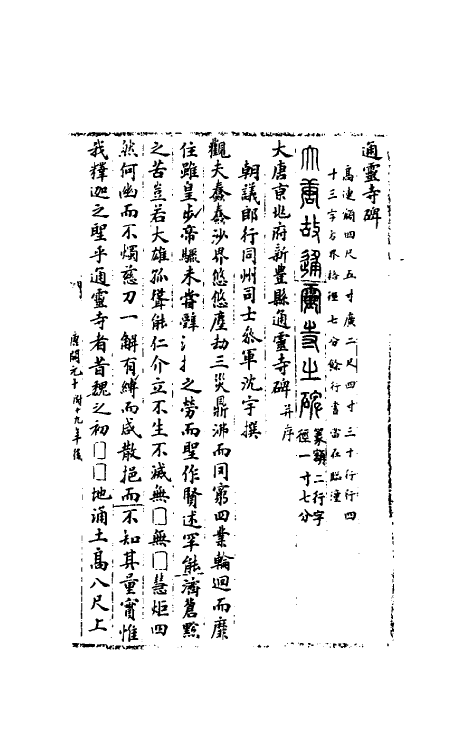 通靈寺碑
高連額四尺五寸廣二尺四寸三十行行四
十三字方界格徑七分餘行書當在臨潼
大唐故通靈寺之碑 篆額二行字徑一寸七分
大唐京兆府新豐縣通靈寺碑并序
朝議郎行同州司士叅軍沈宇撰
觀夫森森沙界悠悠塵劫三災鼎沸而同窮四業輪迴而靡
住雖皇步帝驟未嘗之勞而聖作賢述罕能濟蒼黔
之苦豈若大雄孤聳能仁介立不生不滅無□無□慧炬四
然何幽而不燭慈刀一解有縛而咸散挹而不知其量實惟
我釋迦之聖乎通靈寺者昔魏之初□□地涌土高八尺上
唐開元十 附十九年後